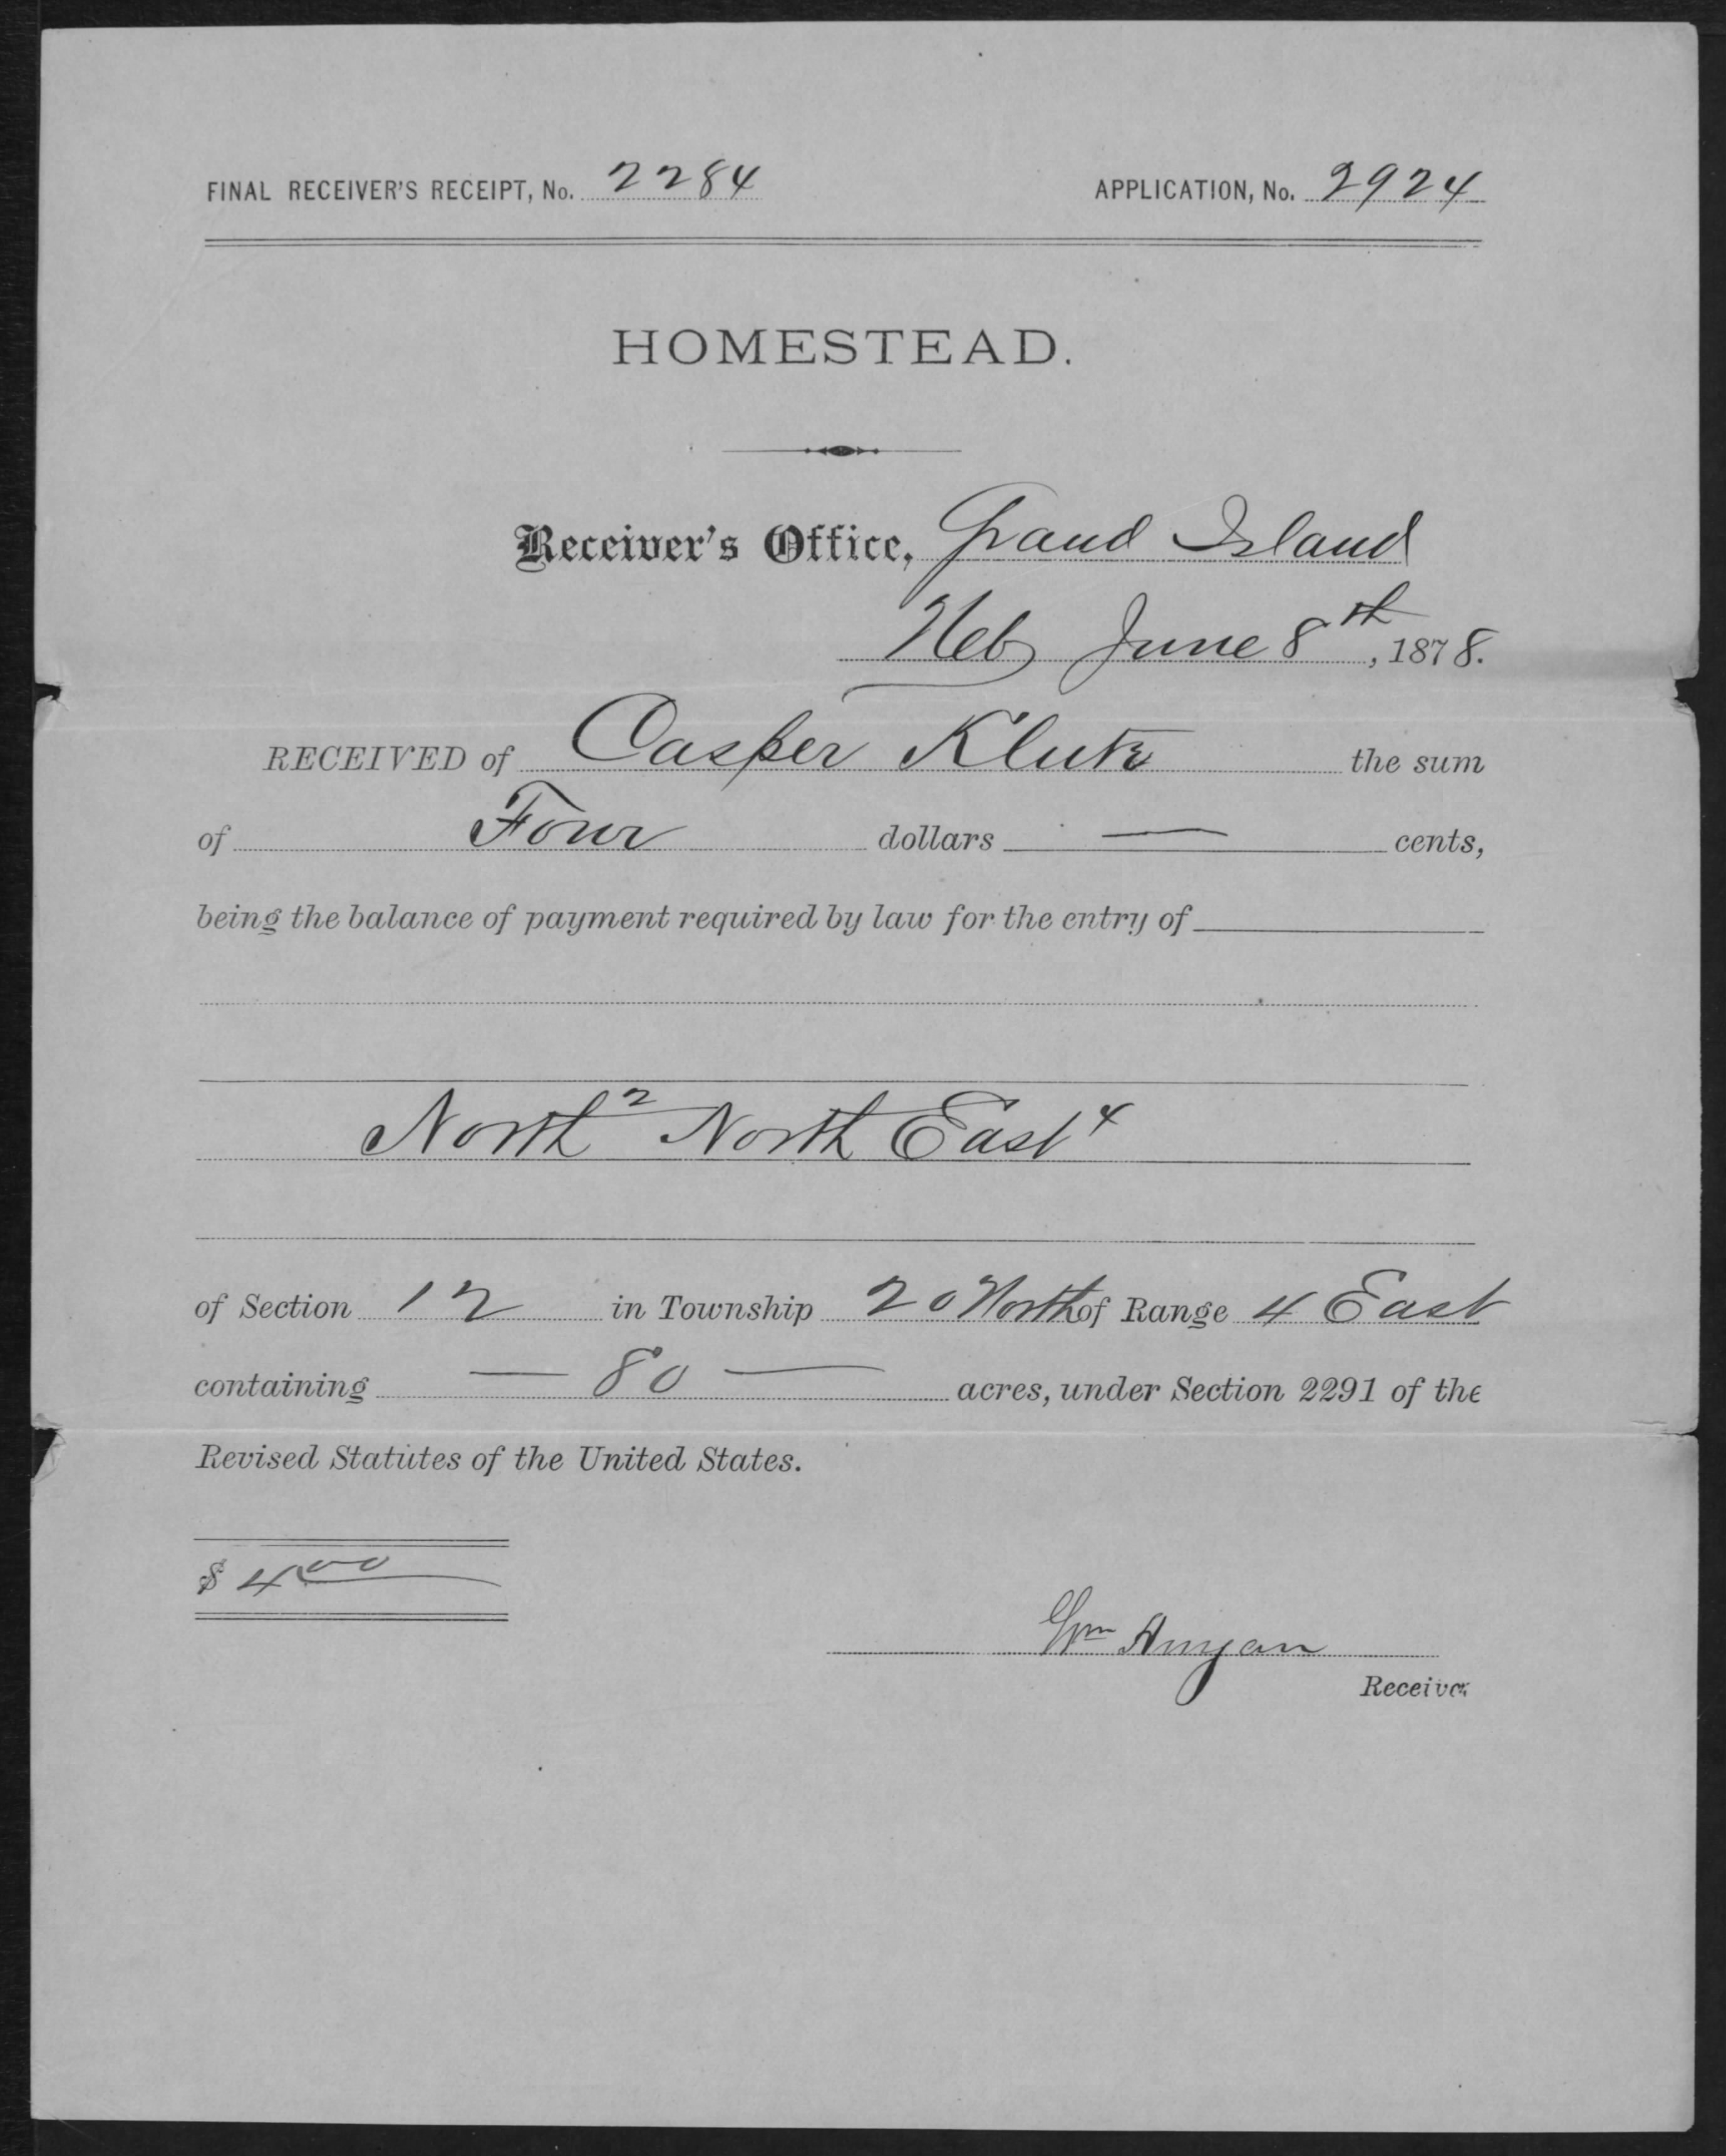 FINAL RECEIVER'S RECEIPT, No. 2284 APPLICATION, No. 2924
HOMESTEAD.
Receiver's Office, Grand Island
Neb June 8th, 1878.
RECEIVED of Casper Klutz the sum
of Four dollars — cents,
being the balance of payment required by law for the entry of
North 2 North East 4
of Section 12 in Township 20 North of Range 4 East
containing — 80 — acres, under Section 2291 of the
Revised Statutes of the United States.
$ 4 00
Wm Anyan
Receiver